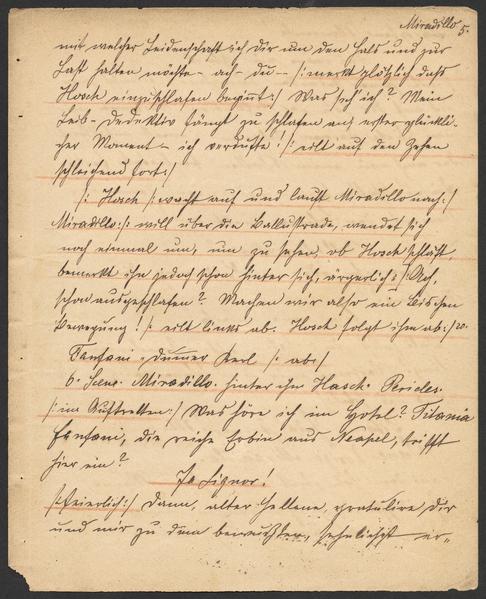 Miradillo 5.
mit welcher Leidenschaft ich Dir um den Hals und zur
Last fallen möchte – ach – du – /: merkt plötzlich dass
Hasch einzuschlafen beginnt :/ Was seh ich? Mein
Leib-Dedektiv fängt zu schlafen an, erster glückli-
cher Moment – ich verdufte! /: eilt auf den Zehen
schleichend fort :/
/: Hasch :/ wacht auf und lauft Miradillo nach :/
Miradillo /: will über die Ballustrade, wendet sich
noch einmal um, um zu sehen, ob Hasch schläft,
bemerkt ihn jedoch schon hinter sich, ärgerlich :/ Ach,
schon ausgeschlafen? Machen wir also ein bischen
Bewegung! /: eilt links ab. Hasch folgt ihm ab :/
Fanfani – dumer Kerl /: ab :/
6. Scene. Miradillo. hinter ihm Hasch. Pericles.
/: im Auftretten :/ Was höre ich im Hotel? Titania
Fanfani, die reiche Erbin aus Neapel, trifft
hier ein?
Ja Signor!
/: feierlich :/ Dann, alter Hellene, gratulire Dir
und mir zu dem bewußten, sehnlichst er-